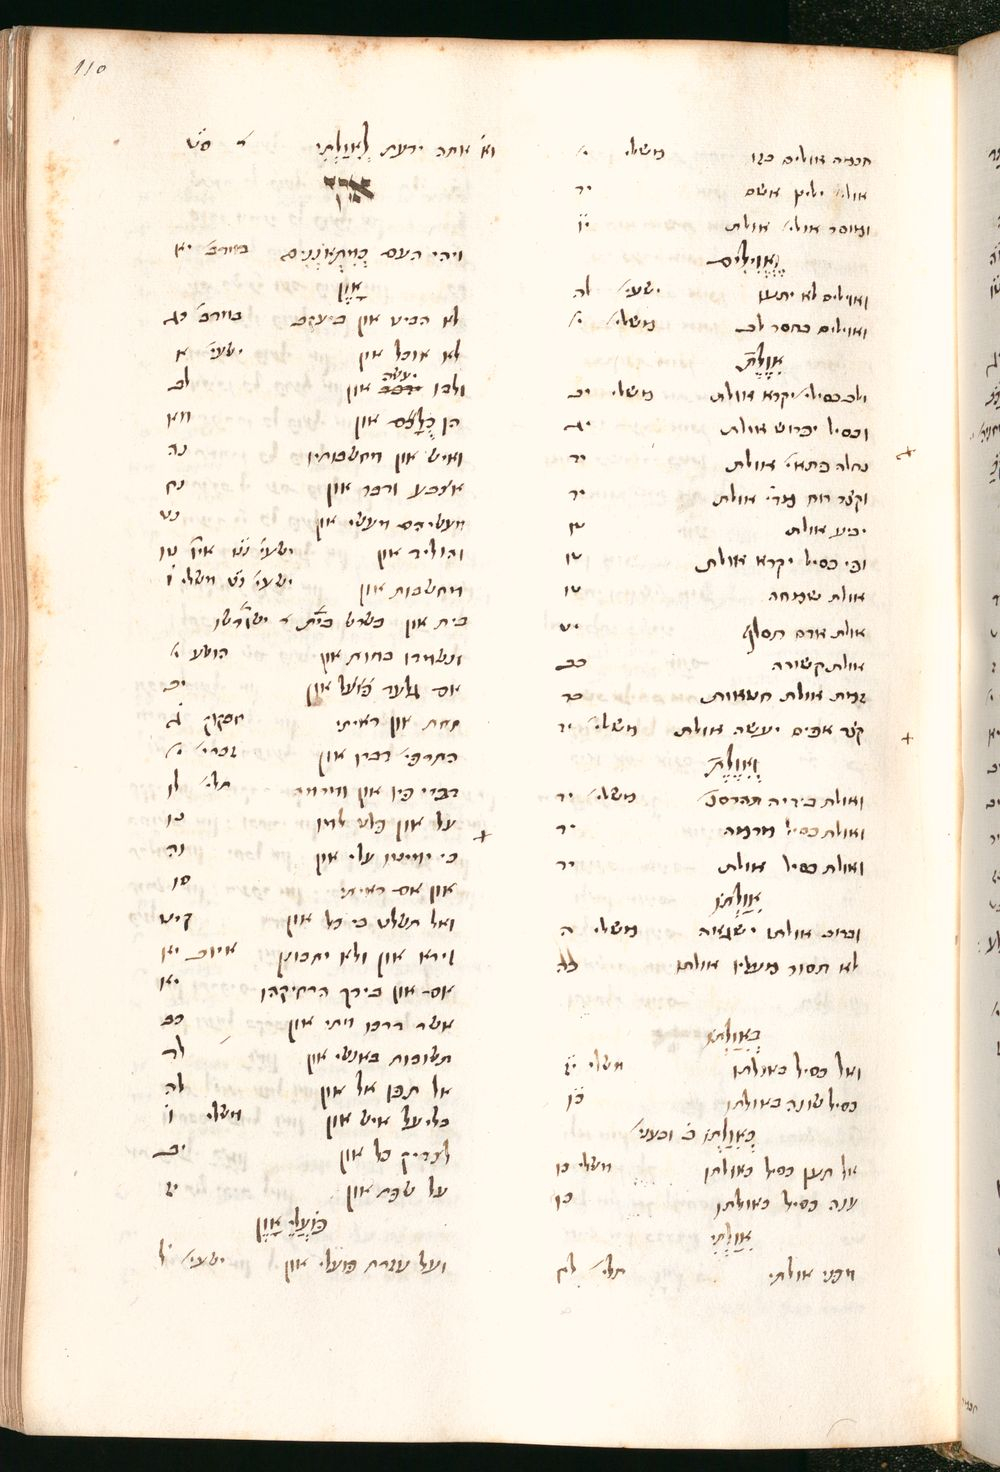 110
חכמה אוילים בגו משלי י
אוילי יליץ אשם יד
ומוסר אוילי אולת יו
וֶאֱוִילִים
ואוילים לא יתעו ישעי לה
ואוילים בחסר לב משלי י
אִוֶּלֶת
ולב כסילי יקרא אולת משלי יב
וכסיל יפרוש אולת יג
נחלה פתאי אולת יד
וקצר רוח מרי אולת יד
יביע אולת טו
ופי כסיל ירעה אולת טו
אולת שמחה טו
אולת אדם תסלף יט
אולת קשורה כב
זמת אולת חטאות כד
קצר אפים יעשה אולת משלי יד
וְאִוֶּלֶת
ואולת בידיה תהרסנו משלי יד
ואולת כסיל מרמה יד
ואולת כסיל אולת יד
אִוַּלְתּוֹ
וברוב אולתו ישגה משלי ה
לא תסור מעליו אולתו כז
בְּאִוַּלְתּוֹ
ואל כסיל באולתו משלי יז
כסיל שונה באולתו כו
כְּאִוַּלְתּוֹ
אל תען כסיל כאולתו משלי כו
ענה כסיל כאולתו כו
אִוַּלְתִּי
מפני אולתי תלי לח
אתה ידעת לְאִוַּלְתִּי סט
ויהי העם כְּמִתְאֹנְנִים במדב יא
אָוֶן
לא הביט און ביעקב במדב כג
לא אוכל און ישעי א
ולבו יעשה און לב
הן כֻּלָּם און מא
ואיש און מחשבותיו נה
אצבע ודבר און נח
מעשיהם מעשי און נט
והוליד און ישעי נט איוב טו
מחשבות און ישעי נט משלי ו
בית און
ונשמרו בחות און הושע י
אם גלעד און יב
תחת און ראיתי חבקוק ג
התרפי דברו און זכרי י
דברי פיו און ומרמה תלי לו
על און פלט למו נו
כי ימיטו עלי און נה
און אם ראיתי סו
ואל תשלט בי כל און קיט
וירא און ולא יתבונן איוב יא
אם און בידך הרחיקהו יא
אשר דרכו מתי און כב
תשובות באנשי און לד
אל תפן אל און לו
בליעל איש און משלי ו
לצדיק כל און יב
על שפת און יז
פֹּעֲלֵי אָוֶן
ועל עזרת פועלי און ישעי ל